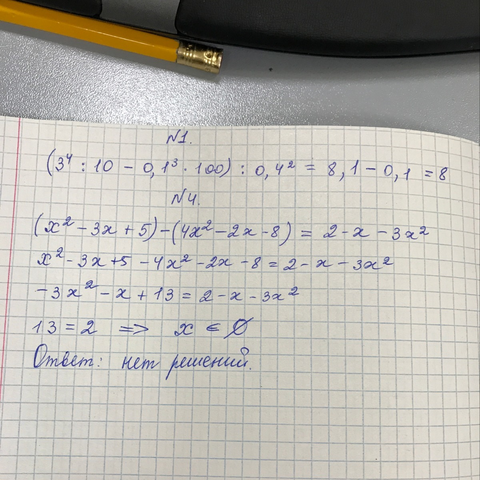 N1.
(3⁴ : 10 - 0,1³ · 100) : 0,4² = 8,1 - 0,1 = 8
N4.
(x² - 3x + 5) - (4x² - 2x - 8) = 2 - x - 3x²
x² - 3x + 5 - 4x² - 2x - 8 = 2 - x - 3x²
-3x² - x + 13 = 2 - x - 3x²
13 = 2 => x ∈ ∅
Ответ: нет решений.